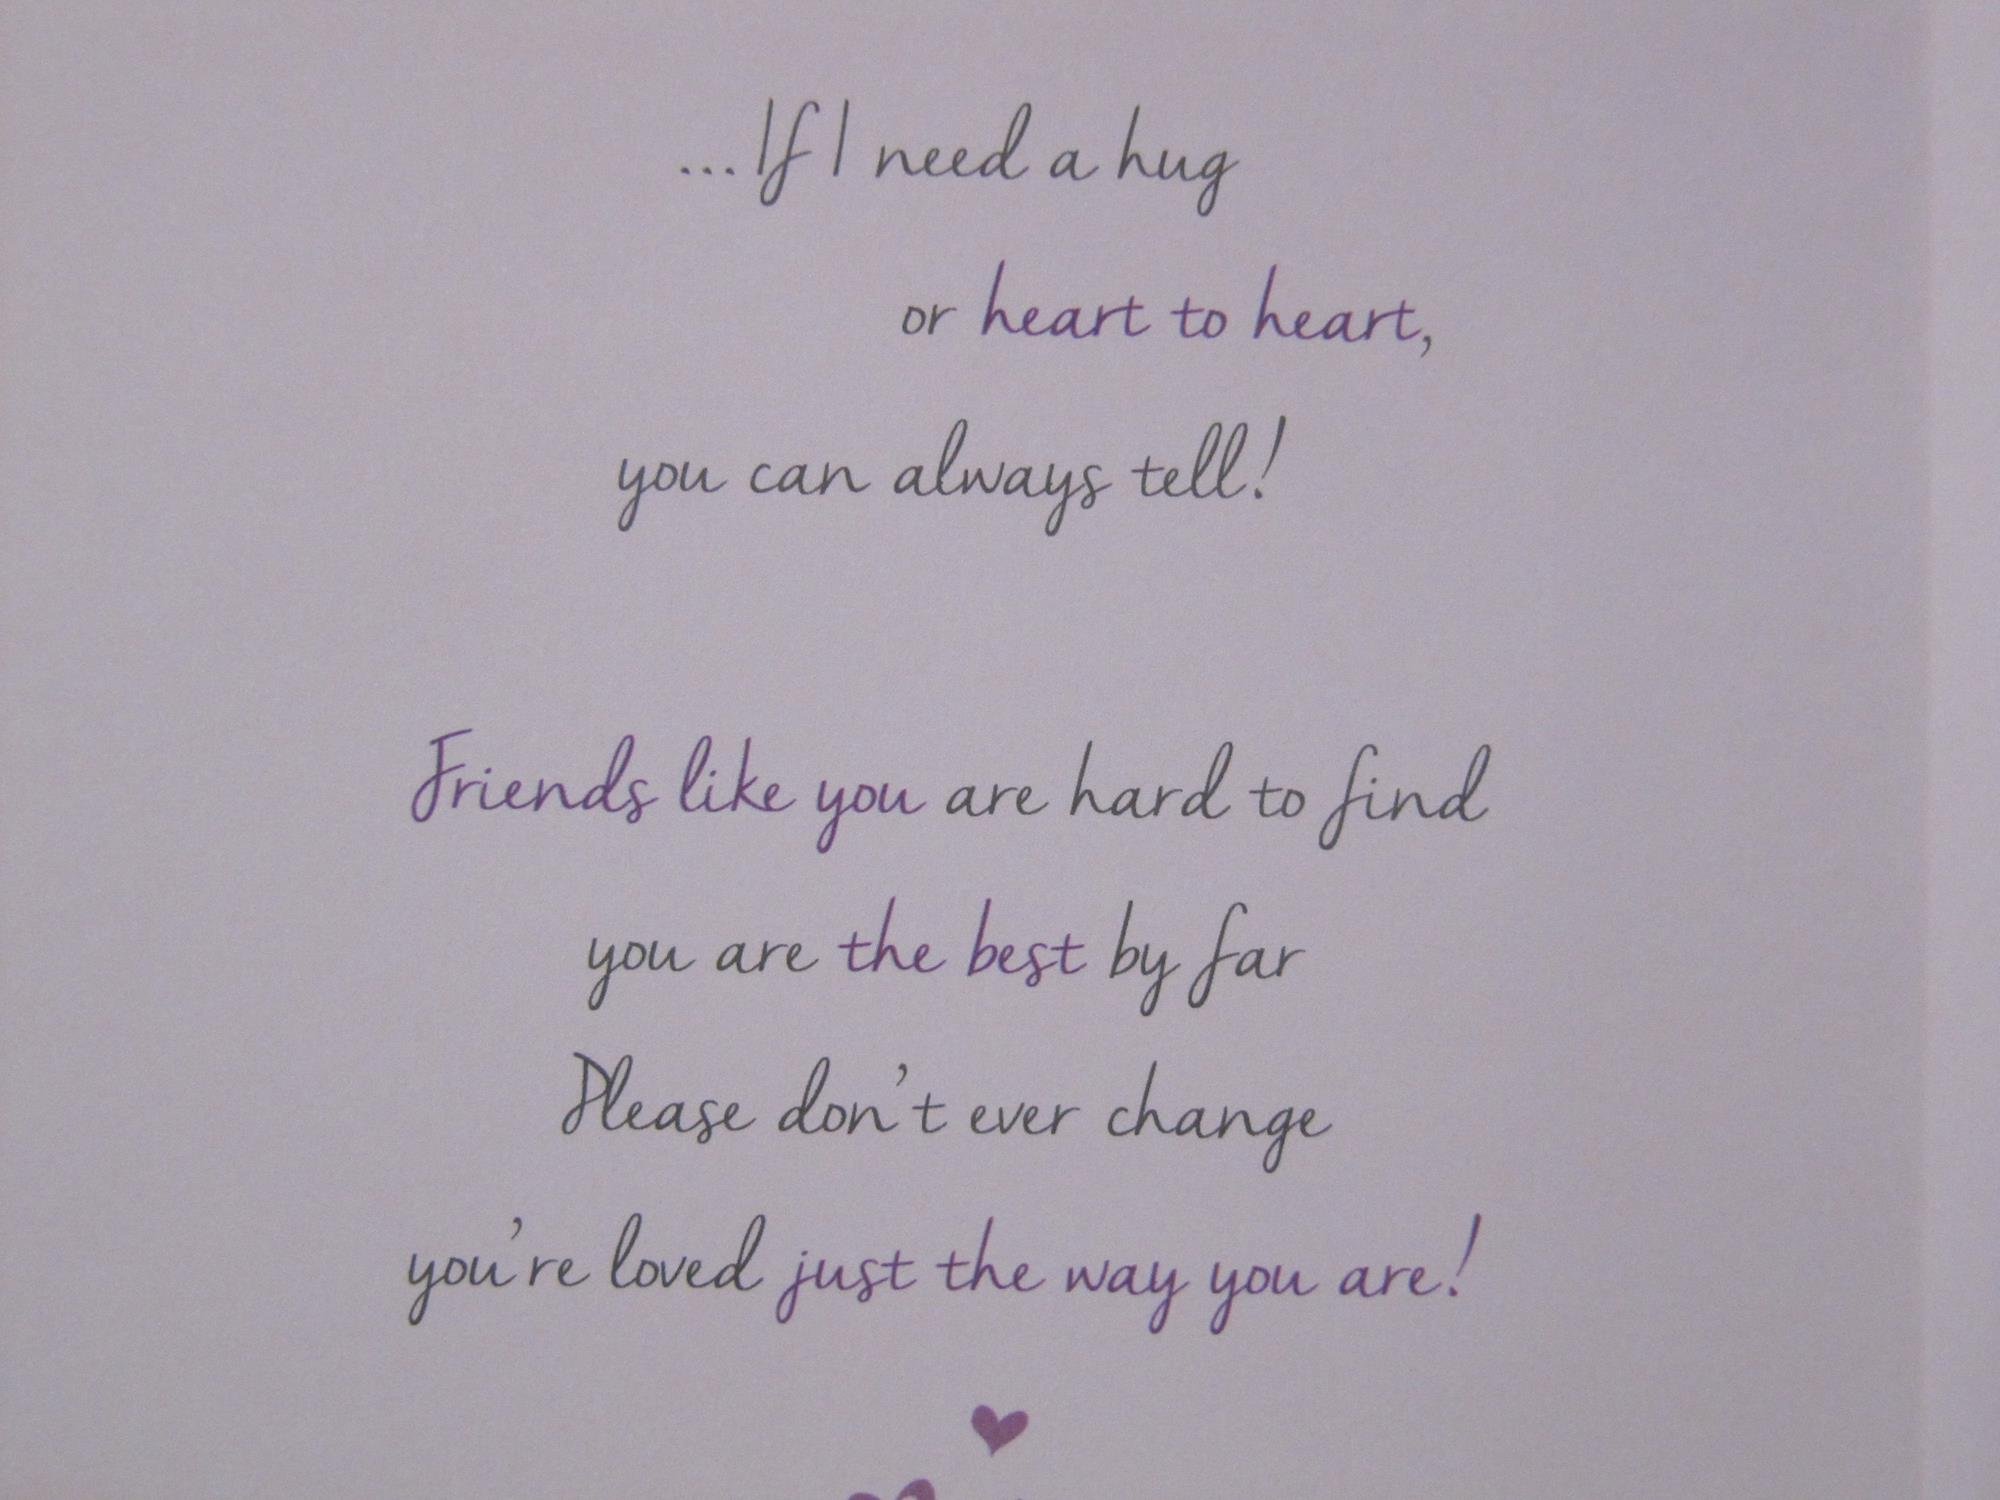 ...If I need a hug
or heart to heart,
you can always tell!
Friends like you are hard to find
you are the best by far
Please don't ever change
you're loved just the way you are!